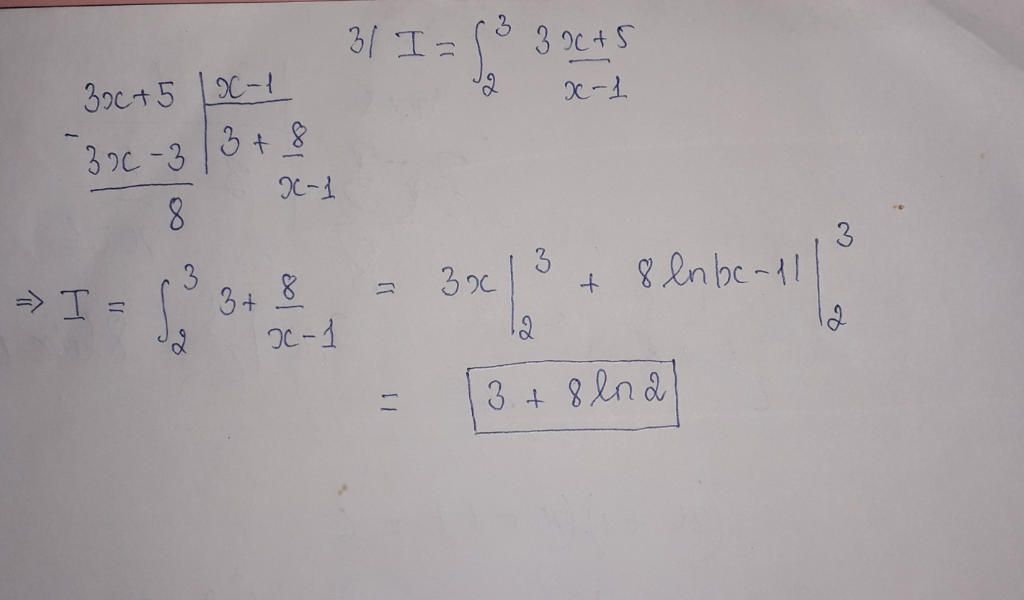 3/ I = ∫₂³ (3x+5)/(x-1)
3x+5 | x-1
- 3x-3 | 3 + 8/(x-1)
8
⇒ I = ∫₂³ 3 + 8/(x-1) = 3x |₂³ + 8 ln|x-1| |₂³
= 3 + 8 ln 2